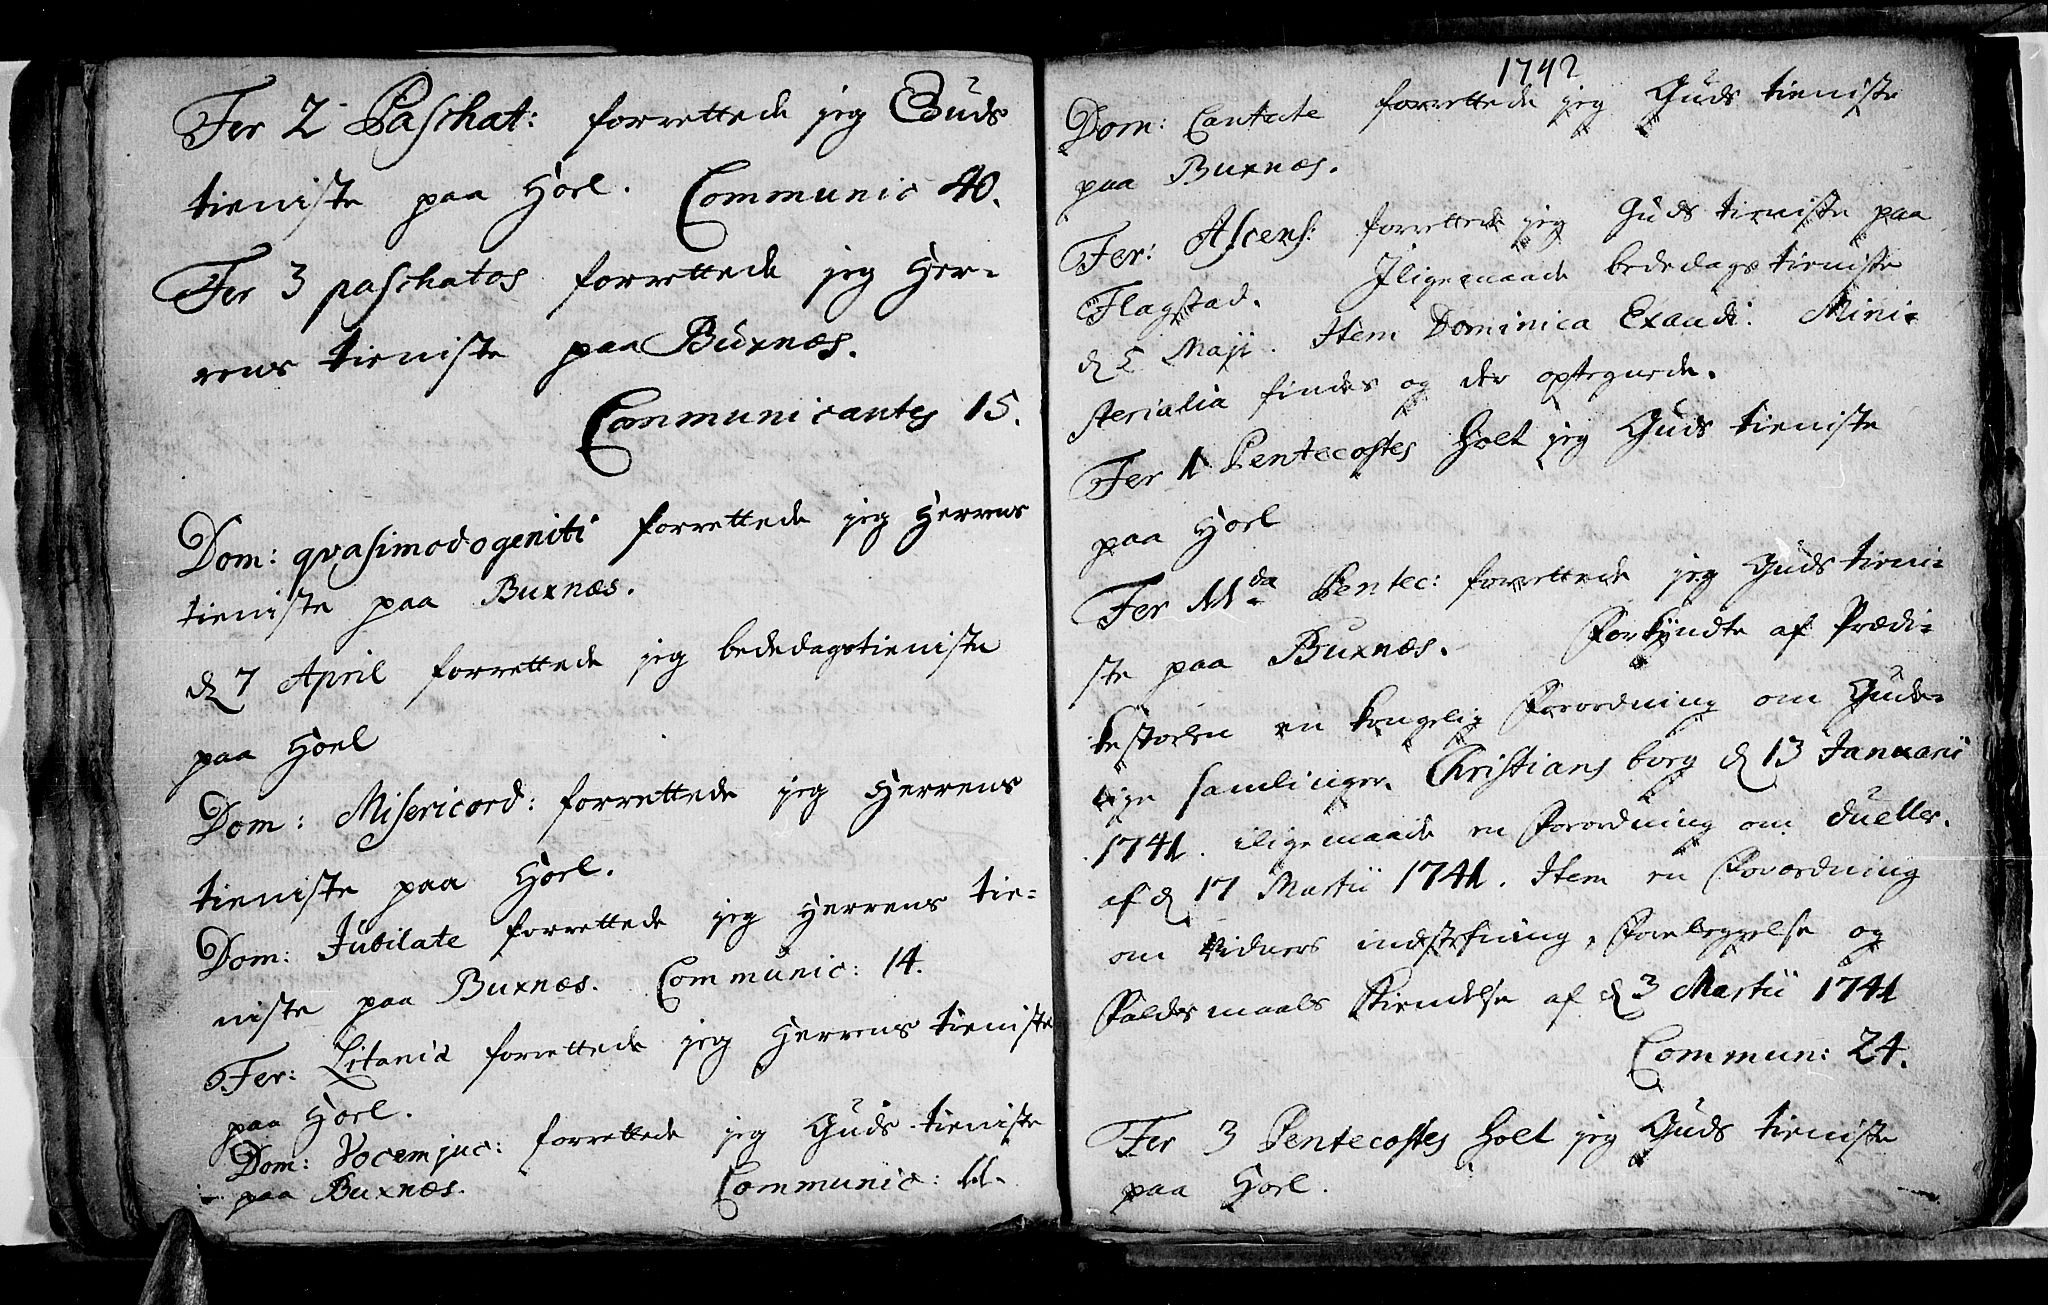 Fer 2 Paschat: forrettede jeg Guds
tieniste paa Hoel. Communic 40.
Fer 3 paschatos forrettede jeg Her-
rens tieniste paa Buxnæs.
Communicantes 15.
Dom: qvasimodogeniti forrettede jeg Herrens
tieniste paa Buxnæs.
d 7 April forrettede jeg bededagstieniste
paa Hoel
Dom: Misericord: forrettede jeg Herrens
tieniste paa Hoel.
Dom: Jubilate forrettede jeg Herrens tie-
niste paa Buxnæs. Communic: 14.
Fer: Litania forrettede jeg Herrens tieniste
paa Hoel.
Dom: Vocem juc: forrettede jeg Guds tieniste
paa Buxnæs. Communic: 11.
1742
Dom: Cantate forrettede jeg Guds tieniste
paa Buxnæs.
Fer: Ascens: forrettede jeg Guds tieniste paa
Flagstad. Iligemaade bededags tieniste
d 5 Maji. Item Dominica Exaudi. Mini-
sterialia findes og der optegnede.
Fer 1 Pentecostes holt jeg Guds tieniste
paa Hoel
Fer 11da Pentec: forrettede jeg Guds tieni-
ste paa Buxnæs. Forkyndte af Prædi-
kestolen en kongelig Forordning om Gude-
lige samlinger. Christiansborg d 13 Januarii
1741. iligemaade en Forordning om dueller.
af d 17 Martii 1741. Item en Forordning
om vidners indstefning, Forelæggelse og
Faldsmaals Kiendelse af d 3 Martii 1741
Commun: 24.
Fer 3 Pentecostes holt jeg Guds tieniste
paa Hoel.